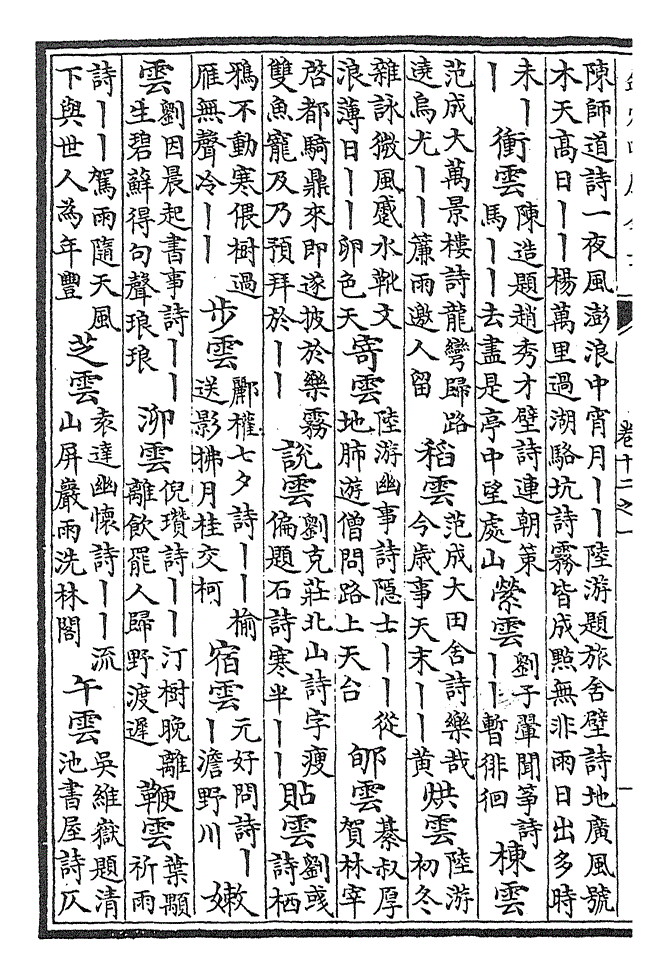 卷十二之一
陳師道詩一夜風澎浪中宵月丨丨陸游題旅舍壁詩地廣風號
木天高日丨丨楊萬里過湖駱坑詩霧皆成點無非雨日出多時
未丨丨衝雲陳造題趙秀才壁詩連朝策馬丨丨去盡是亭中望處山縈雲劉子翬聞箏詩丨丨暫徘徊棟雲
范成大萬景樓詩龍彎歸路遶烏尤丨丨簾雨邀人留稻雲范成大田舍詩樂哉今歲事天末丨丨黃烘雲陸游初冬
雜詠微風蹙水靴文浪薄日丨丨卵色天寄雲陸游幽事詩隱士丨丨從地肺遊僧問路上天台郇雲綦叔厚賀林宰
啓都騎鼎來即遂披於樂霧雙魚寵及乃預拜於丨丨說雲劉克莊北山詩字瘦偏題石詩寒半丨丨貼雲劉彧詩栖
鴉不動寒偎樹過雁無聲冷丨丨步雲酈權七夕詩丨丨榆送影拂月桂交柯宿雲元好問詩丨丨澹野川嫩
雲劉因晨起書事詩丨丨生碧蘚得句聲琅琅泖雲倪瓚詩丨丨汀樹晚離離飲罷人歸野渡遲鞭雲葉顒祈雨
詩丨丨駕雨隨天風下與世人為年豐芝雲袁達幽懷詩丨丨流山屏嚴雨洗林閣午雲吳維嶽題清池書屋詩仄